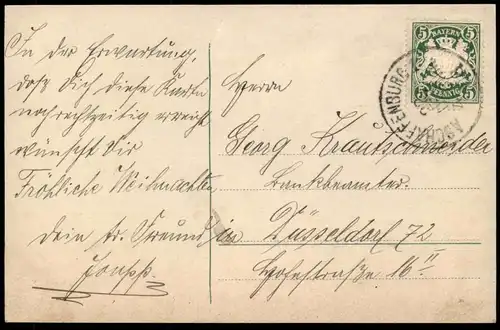 In der Erwartung,
daß Dich diese Karte
noch rechtzeitig erreicht
wünscht Dir
Fröhliche Weihnachten
Dein tr. Freund
5 BAYERN 5
5 PFENNIG 5
ASCHAFFENBURG
Herrn
Georg Krautschneider
Bankbeamter
in Düsseldorf 72
straße 16 II